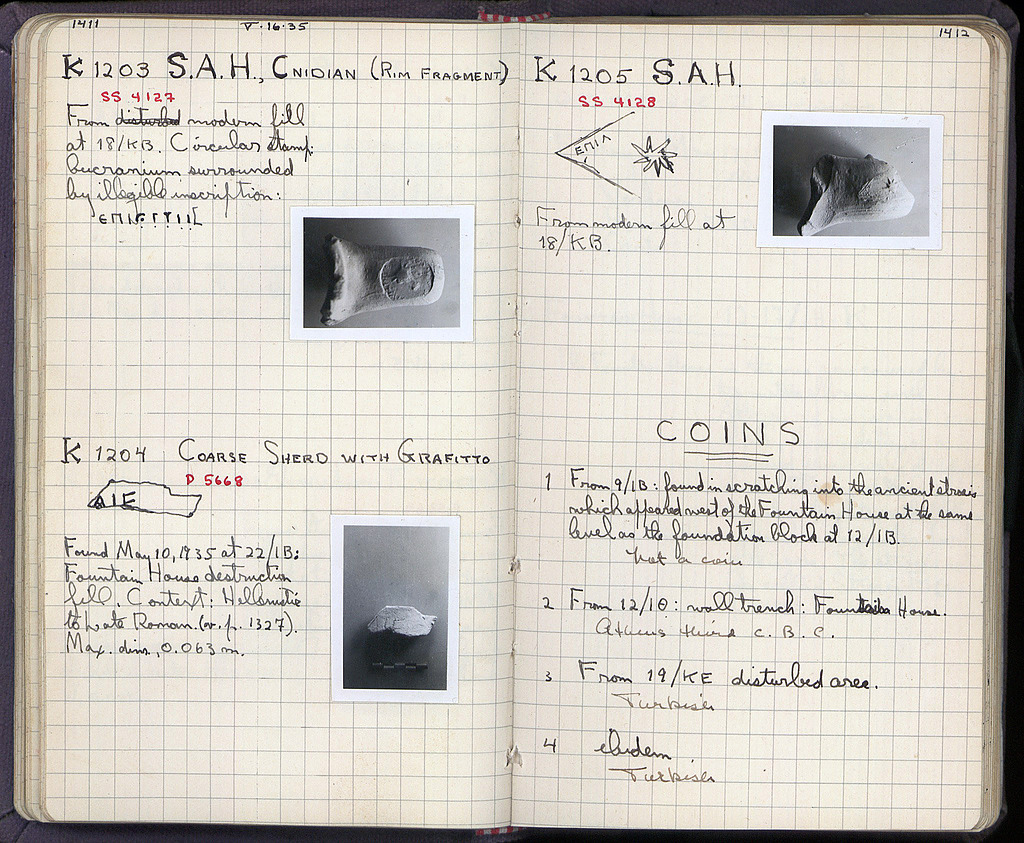 1411
V·16·35
K 1203 S.A.H., CNIDIAN (RIM FRAGMENT)
SS 4127
From disturbed modern fill
at 18/KB. Circular stamp:
bucranium surrounded
by illegible inscription:
K 1204 COARSE SHERD WITH GRAFITTO
P 5668
AIE
Found May 10, 1935 at 22/IB:
Fountain House destruction
fill. Context: Hellenistic
to Late Roman. (cv. p. 1327).
Max. dim., 0.063 m.
1412
K 1205 S.A.H.
SS 4128
ΕΠΙΛ
From modern fill at
18/KB.
COINS
1 From 9/IB: found in scratching into the ancient strosis
which appeared west of the Fountain House at the same
level as the foundation block at 12/IB.
Not a coin
2 From 12/ΙΘ: wall trench: Fountain House.
Athens third C. B. C.
3 From 19/KE disturbed area.
Turkish
4 ibidem
Turkish